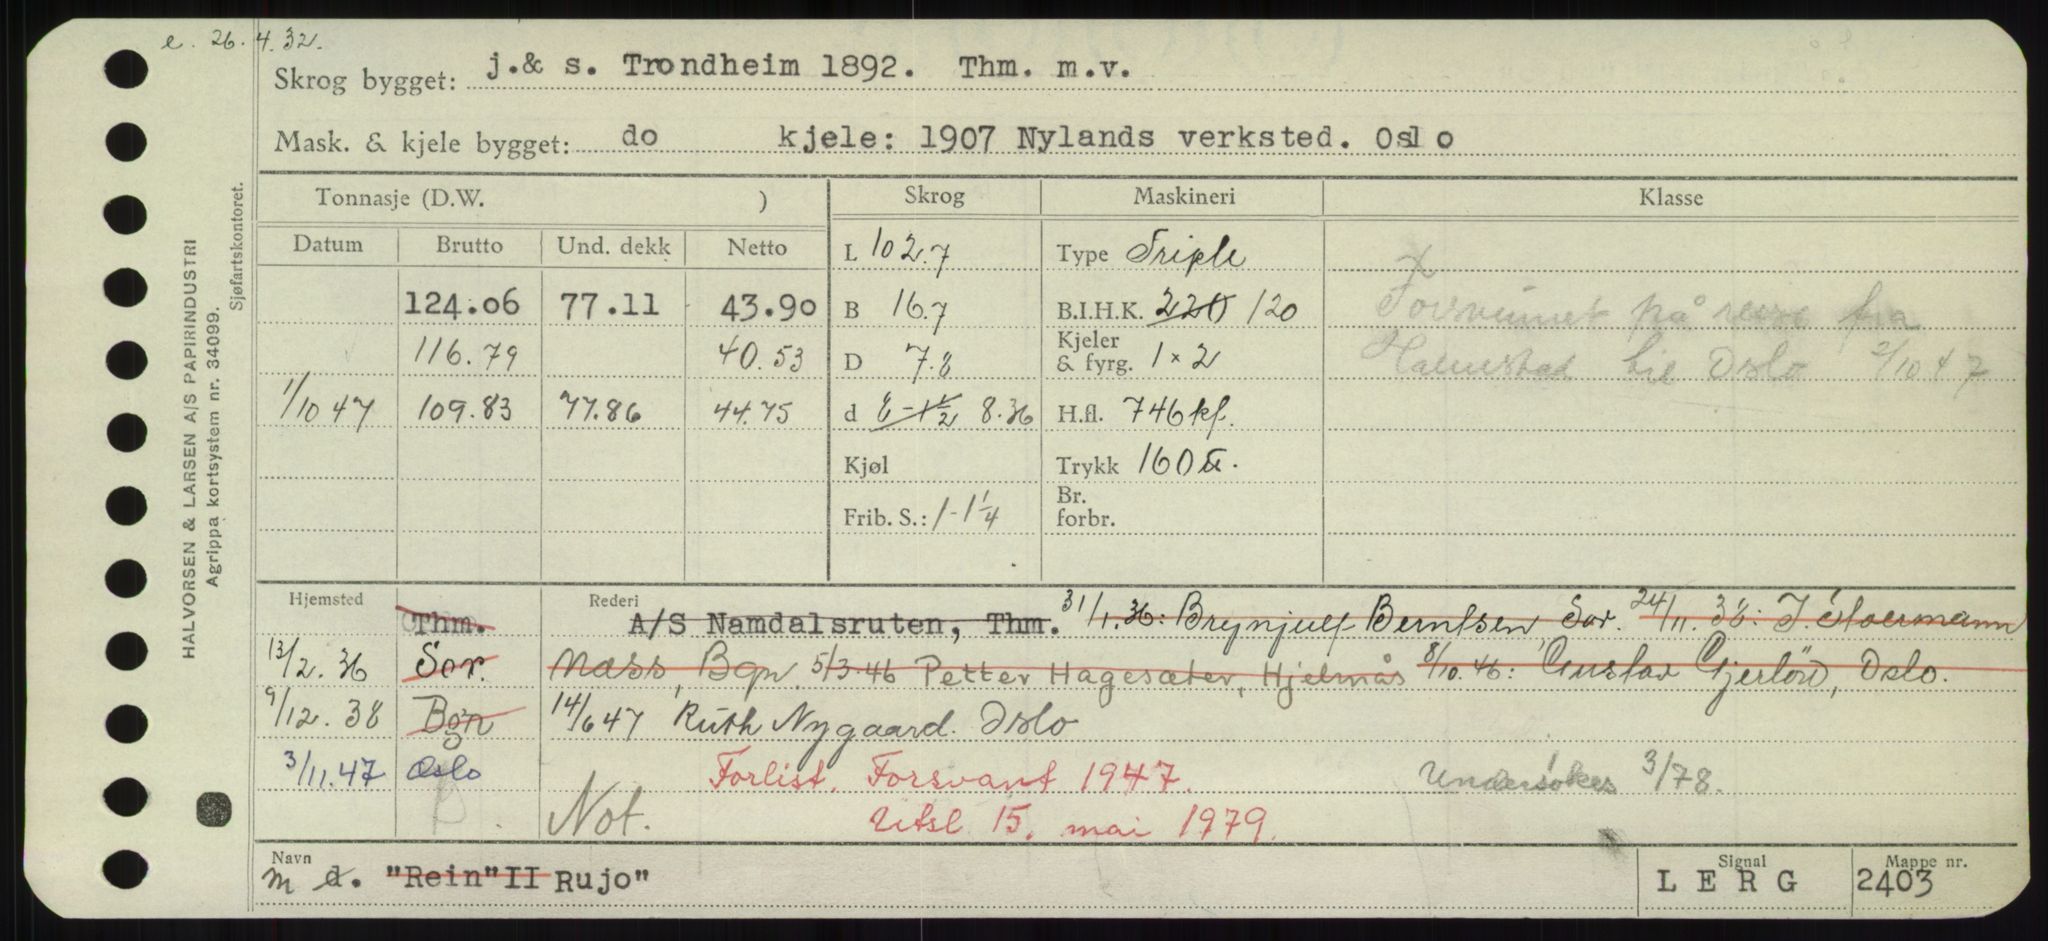 e. 26.4.32.
Skrog bygget: j.& s. Trondheim 1892. Thm. m.v.
Mask. & kjele bygget: do kjele: 1907 Nylands verksted. Oslo
Tonnasje (D.W. ) Skrog Maskineri Klasse
Datum Brutto Und. dekk Netto L 102.7 Type Triple X
124.06 77.11 43.90 B 16.7 B.I.H.K. 220 120 Forsvunnet på reise fra
116.79 40.53 D 7.8 Kjeler & fyrg. 1 × 2 Halmstad til Oslo 2/10 47
1/10 47 109.83 77.86 44.75 d 8-1½ 8.36 H.fl. 746 kf.
Kjøl Trykk 160 lb.
Frib. S.: 1-1¼ Br. forbr.
Hjemsted Rederi
Thm. A/S Namdalsruten, Thm. 31/1.36: Brynjulf Berntsen, Sor. 24/11.38: J. Stoermann
13/2.36 Sor. Næss, Bgn. 5/3.46 Petter Hagesæter, Hjelmås 8/10.46: Gustav Gjerløw, Oslo.
9/12.38 Bgn 14/6 47 Ruth Nygaard. Oslo
3/11.47 Oslo Forlist. Forsvant 1947. Undersøkes 3/78.
Not. Utsl 15. mai 1979.
Navn Signal Mappe nr.
m d. "Rein" II Rujo" L E R G 2403
HALVORSEN & LARSEN A/S PAPIRINDUSTRI
Agrippa kortsystem nr. 34099.
Sjøfartskontoret.